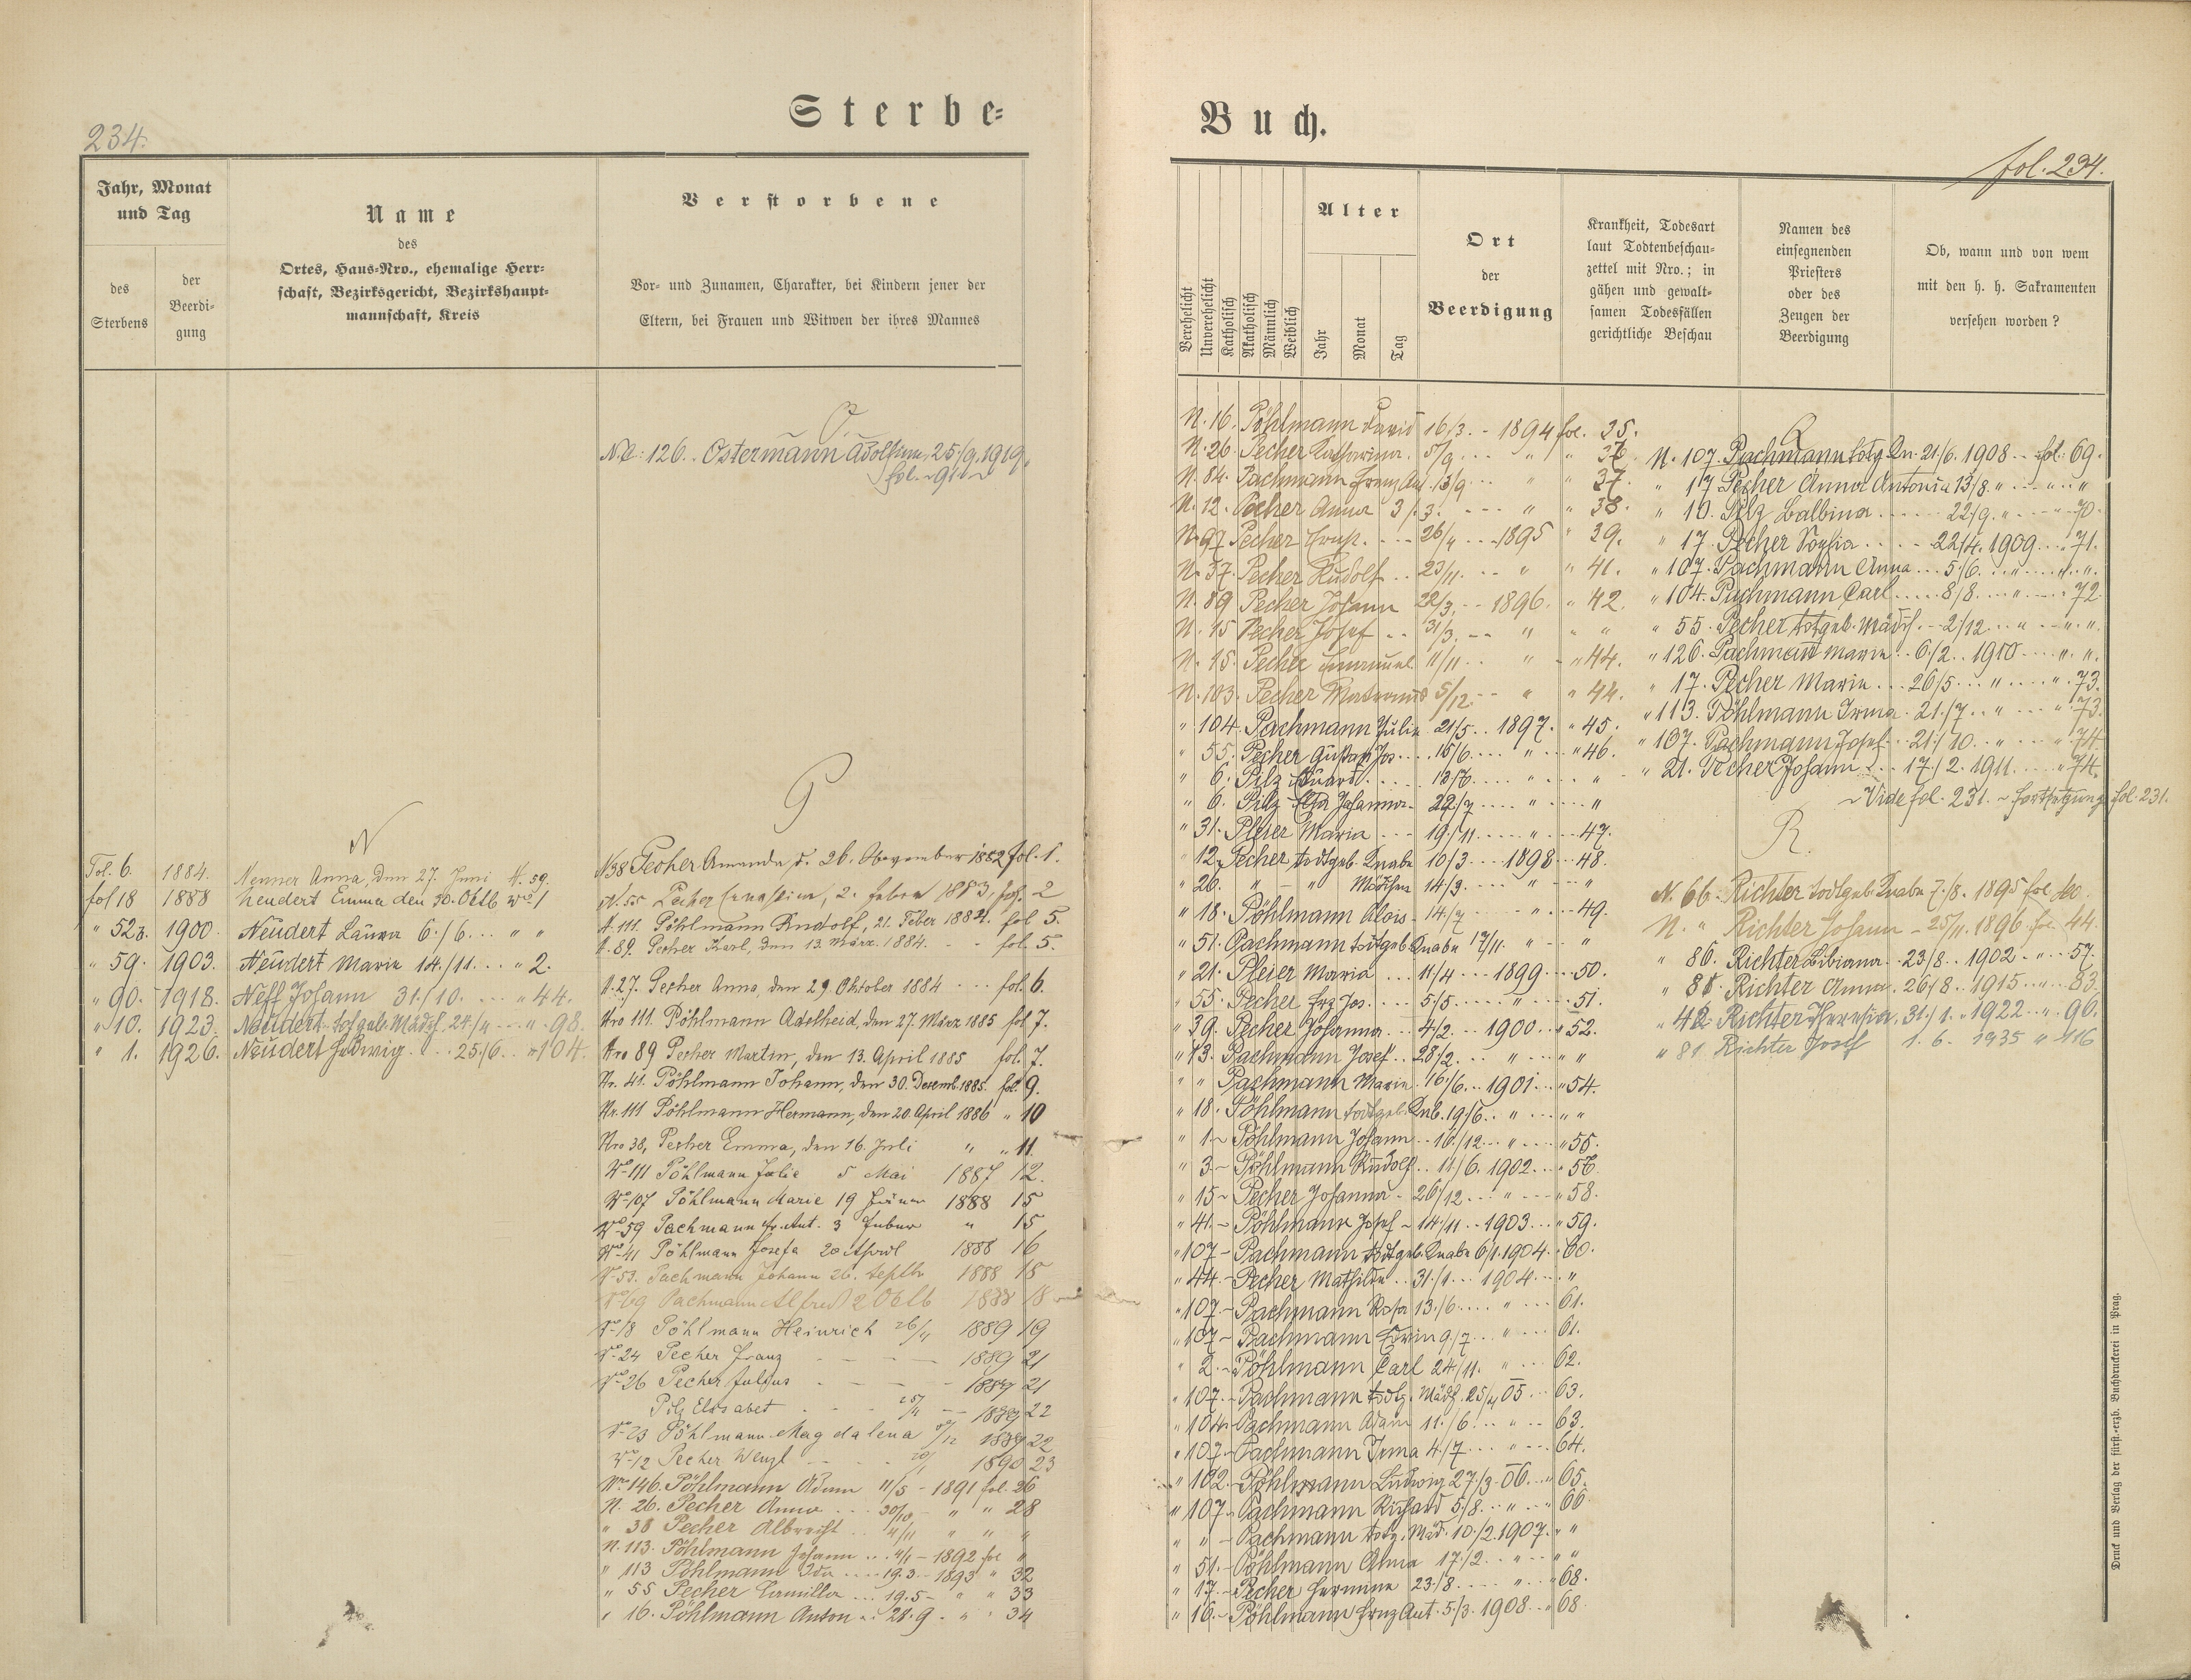 Sterbe-
234.
Jahr, Monat
und Tag
des
Sterbens
der
Beerdi-
gung
Name
des
Ortes, Haus-Nro., ehemalige Herr-
schaft, Bezirksgericht, Bezirkshaupt-
mannschaft, Kreis
Verstorbene
Vor- und Zunamen, Charakter, bei Kindern jener der
Eltern, bei Frauen und Witwen der ihres Mannes
O.
No: 126. Ostermann Adolf 25./9. 1919.
fol. 91
N
Fol. 6. 1884. Nenner Anna, den 27. Juni N. 59.
fol 18 1888 Neudert Emma den 30. Oktb No 1
" 52 1900 Neudert Laura 6./6... " "
" 59. 1903. Neudert Marie 14./11... " 2.
" 90. 1918. Neff Johann 31./10. ... " 44.
" 10. 1923. Neudert todtgeb. Mädch. 24/4 " 98.
" 1. 1926. Neudert Hedwig... 25./6. " 104.
P
N 38 Pecher Amanda, d. 26. November 1882 fol. 1.
N. 55 Pecher 2. 1883, fol. 2
N. 111. Pöhlmann Rudolf, 21. Feber 1884. fol 5.
N. 89. Pecher Karl, den 13. März. 1884. - - fol. 5.
N. 27. Pecher Anna, den 29. Oktober 1884 - - - fol. 6.
Nro 111. Pöhlmann Adelheid, den 27. März 1885 fol 7.
Nro 89 Pecher Martin, den 13. April 1885 fol. 7.
Nr. 41. Pöhlmann Johann, den 30. Decemb. 1885. fol. 9.
Nr. 111 Pöhlmann Hermann, den 20 April 1886 " 10
Nro 38, Pecher Emma, den 16. Juli " " 11.
No 111 Pöhlmann Julie 5 Mai 1887 12.
No 107 Pöhlmann Marie 19 Jänner 1888 15
No 59 Pachmann Fr. Ant. 3 Feber " 15
No 41 Pöhlmann Josefa 20 April 1888 16
No 53. Pachmann Johann 26. Septb 1888 18
No 69 Pachmann Alfred 2 Oktb 1888 18
No 18 Pöhlmann Heinrich 26/4 1889 19
No 24 Pecher Franz - - - 1889 21
No 26 Pecher Julius - - - 1889 21
Pilz Elisabet - - - 25/4 - - 1889 22
No 23 Pöhlmann Magdalena /12 1889 22
No 12 Pecher Wenzl - - - 20/1 1890 23
No 146. Pöhlmann Adam 11/5 - 1891 fol. 26
N. 26. Pecher Anna ... 30/10 - " " 28
" 38 Pecher Albrecht .. 4/11 " " "
N. 113. Pöhlmann Johann ... 4/1 - 1892 fol "
" 113 Pöhlmann Ida .... 19.3 - 1893 " 32
" 55 Pecher Camilla ... 19.5 - " " 33
" 16. Pöhlmann Anton .. 28.9. - " " 34
Buch.
fol. 234.
Verehelicht
Unverehelicht
Katholisch
Akatholisch
Männlich
Weiblich
Alter
Jahr
Monat
Tag
Ort
der
Beerdigung
Krankheit, Todesart
laut Todtenbeschau-
zettel mit Nro.; in
gähen und gewalt-
samen Todesfällen
gerichtliche Beschau
Namen des
einsegnenden
Priesters
oder des
Zeugen der
Beerdigung
Ob, wann und von wem
mit den h. h. Sakramenten
versehen worden?
N. 16. Pöhlmann David 16/3. - 1894 fol. 35.
N. 26. Pecher Katharina. 5/9. ... " " 36
N. 84. Pachmann Franz Ant. 13/9 ... " " 37.
N. 12. Pecher Anna 3/3. --- " " 38.
N. 97. Pecher --- 26/4 --- 1895 " 39.
N. 37. Pecher Rudolf .. 23/11. -- " " 41.
N. 89 Pecher Johann 22/3. -- 1896. " 42.
N. 15 Pecher Josef .. 31/3. -- " " "
N. 15. Pecher Emanuel 11/11 .. " " 44.
N. 103. Pecher 5/12. -- " " 44.
" 104. Pachmann Julie 21/5 .. 1897. " 45.
" 55. Pecher Gustav Jos... 15/6 .... " " 46.
" 6. Pilz Eduard... 18/6 .... " "
" 6. Pilz Johanna. 22/7 .... " "
" 31. Pleier Maria --- 19./11. .... " 47.
" 12. Pecher todtgeb. Knabe 10/3 --- 1898 -- 48.
" 26. " - " Mädchen 14/3. ... " "
" 18. Pöhlmann Alois. 14/7 " 49.
" 51. Pachmann todtgeb. Knabe 17/11. " "
" 21. Pleier Maria ... 11/4 --- 1899 --- 50.
" 55. Pecher Frz Jos. ... 5/5 ... " 51.
" 39. Pecher Johanna ... 4/2. -- 1900 " 52.
" 13. Pachmann Josef .. 28/2. .. " " "
" " Pachmann Marie. 16./6. .. 1901 .. " 54.
" 18. Pöhlmann todtgeb. Knb. 19/6. " " "
" 1. Pöhlmann Johann .. 10./12 .. " " 55.
" 3. Pöhlmann Rudolf .. 11/6. 1902 .. " 56.
" 15. Pecher Johanna - 26/12 ... " " 58.
" 41. Pöhlmann Josef - 14./11 .. 1903 .. " 59.
" 107 Pachmann todtgeb. Knabe 6/1. 1904. " 60.
" 44. Pecher Mathilde .. 31./1 ... 1904 ... "
" 107. Pachmann Rosa 13./6 .... " ... 61.
" 107. Pachmann Erwin 9./7 ... " ... 61.
" 2. Pöhlmann Carl 24./11. " ... 62.
" 107. Pachmann todtg. Mädch. 25/4 05 ... 63.
" 104. Pachmann Adam 11./6 .. " .. 63.
" 107. Pachmann Irma 4./7 ... " ... 64.
" 102. Pöhlmann Ludwig 27./3. 06. .. " 65.
" 107. Pachmann Richard 5./8. .. " .. " 66.
" " Pachmann todtg. Mäd. 10./2. 1907. " "
" 51. Pöhlmann Alma 17./2. .. " .. " "
" 17. Pecher Hermine 23./8. ... " .. " 68.
" 16. Pöhlmann Frnz Ant. 5./3. 1908 .. " 68.
N. 107. Pachmann todtg. Kn. 21./6. 1908 -- fol. 69.
" 17 Pecher Anna Antonia 13/8. " .. " .. "
" 10. Pilz Balbina ...... 22./9. " .. " 70.
" 17. Pecher Sophia .... 22/4. 1909 ... " 71.
" 107. Pachmann Anna ... 5./6. .. " ... " .. ".
" 104. Pachmann Carl ..... 8/8. ... " " 72
" 55. Pecher todtgeb. Mädch. -- 2/12 .. " .. " ".
" 126. Pachmann Marie .. 6./2. .. 1910 ... " ".
" 17. Pecher Marie ... 26/5 ... " ... " 73.
" 113. Pöhlmann Irma. 21./7 .. " ... " 73.
" 107. Pachmann Josef .. 21./10. .. " " 74.
" 21. Pecher Johann ... 17./2. 1911. ... " 74.
~Vide fol. 231. ~ Fortsetzung fol. 231.
R.
N. 66. Richter todtgeb. Knabe 7./8. 1895 fol. 40.
N. " Richter Johann - 25/11. 1896 fol. 44.
" 86. Richter Bibiana .. 23/8. .. 1902 .. " .. 57.
" 81. Richter Anna. 26./8 .. 1915 .. " .. 83.
" 42. Richter Theresia. 31./1. .. 1922 .. " .. 96.
" 81. Richter Josef 1. 6. 1935 " 116
Druck und Verlag der fürst.-erzb. Buchdruckerei in Prag.